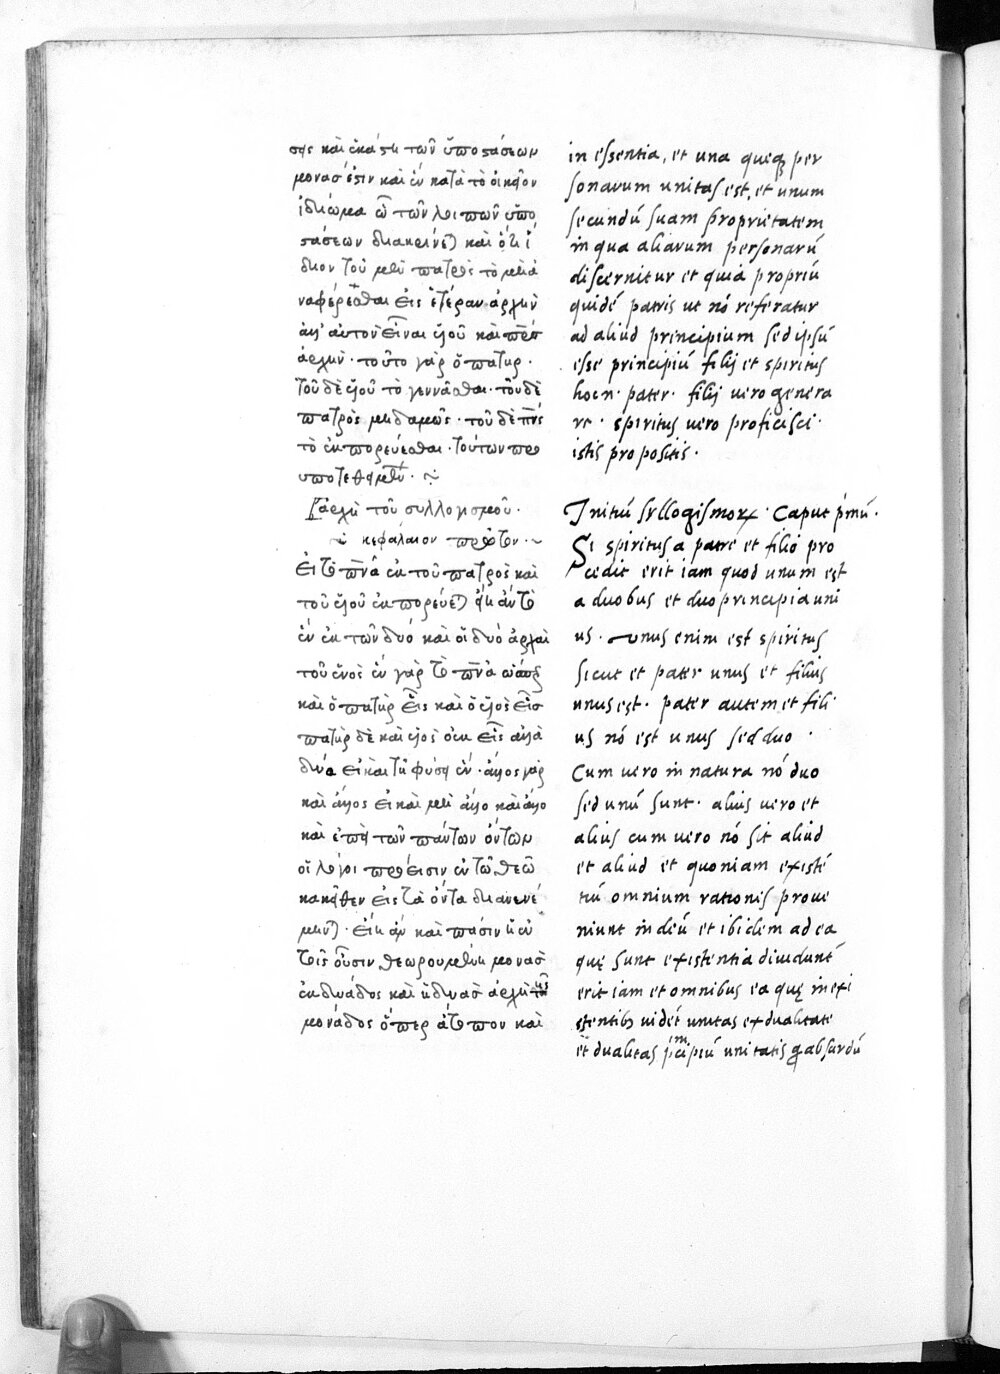 σεις καὶ ἑκάστη τῶν ὑποστάσεων
μονάς ἐστιν καὶ ἓν κατὰ τὸ οἰκεῖον
ἰδίωμα ᾧ τῶν λοιπῶν ὑπο
στάσεων διακρίνεται καὶ ὅτι ἴ
διον τοῦ μὲν πατρὸς τὸ μὴ ἀ
ναφέρεσθαι εἰς ἑτέραν ἀρχὴν
ἀλλ' αὐτὸν εἶναι υἱοῦ καὶ πνς
ἀρχήν · τοῦτο γὰρ ὁ πατήρ ·
τοῦ δὲ υἱοῦ τὸ γεννᾶσθαι · τοῦ δὲ
πατρὸς μηδαμῶς · τοῦ δὲ πνς
τὸ ἐκπορεύεσθαι · τούτων προ
υποτεθημεν ·
ἀρχὴ τοῦ συλλογισμοῦ ·
κεφάλαιον πρῶτον ·
Εἰ τὸ πνα ἐκ τοῦ πατρὸς καὶ
τοῦ υἱοῦ ἐκπορεύεται εἴη ἂν τὸ
ἓν ἐκ τῶν δυό καὶ οἱ δυό ἀρχαὶ
τοῦ ἑνός ἓν γὰρ τὸ πνα
καὶ ὁ πατὴρ εἷς καὶ ὁ υἱὸς εἷς
πατὴρ δὲ καὶ υἱὸς οὐκ εἷς ἀλλὰ
δύο εἰ καὶ τῇ φύσει ἕν · ἄλλος γὰρ
καὶ ἄλλος εἰ καὶ μὴ ἄλλο καὶ ἄλλο
καὶ ἐπεὶ τῶν πάντων ὄντων
οἱ λόγοι πρόεισιν ἐν τῷ θεῷ
κακεῖθεν εἰς τὰ ὄντα διανενέ
μηνται · εἴη ἂν καὶ πᾶσιν ἡ ἐν
τοῖς οὖσιν θεωρουμένη μονὰς
ἐκ δυάδος καὶ ἡ δυὰς ἀρχὴ τῆς
μονάδος ὅπερ ἄτοπον καὶ
in essentia, et una queqȝ per
sonarum unitas est, et unum
secundú suam proprietatem
in qua aliarum personarú
discernitur et quia propriú
quidé patris ut nó referatur
ad aliud principium sed ipsú
esse principiú filij et spiritus
hoc n· pater · filij vero genera
re · spiritus vero proficisci ·
istis propositis ·
Initiú syllogismoꝝ · Caput pímú ·
Si spiritus a patre et filio pro
cedit erit iam quod unum est
a duobus et duo principia uni
us · unus enim est spiritus
sicut et pater unus et filius
unus est · pater autem et fili
us nó est unus sed duo ·
Cum vero in natura nó duo
sed unú sunt · alius vero et
alius cum vero nó sit aliud
et aliud et quoniam existé
tiú omnium rationis prove
niunt in deú et ibidem ad ea
quę sunt existentia dividunt
erit iam et omnibus ea quę in exi
stentibꝫ videt unitas ex dualitate
et dualitas pímcipiú unitatis ꝙ absurdú